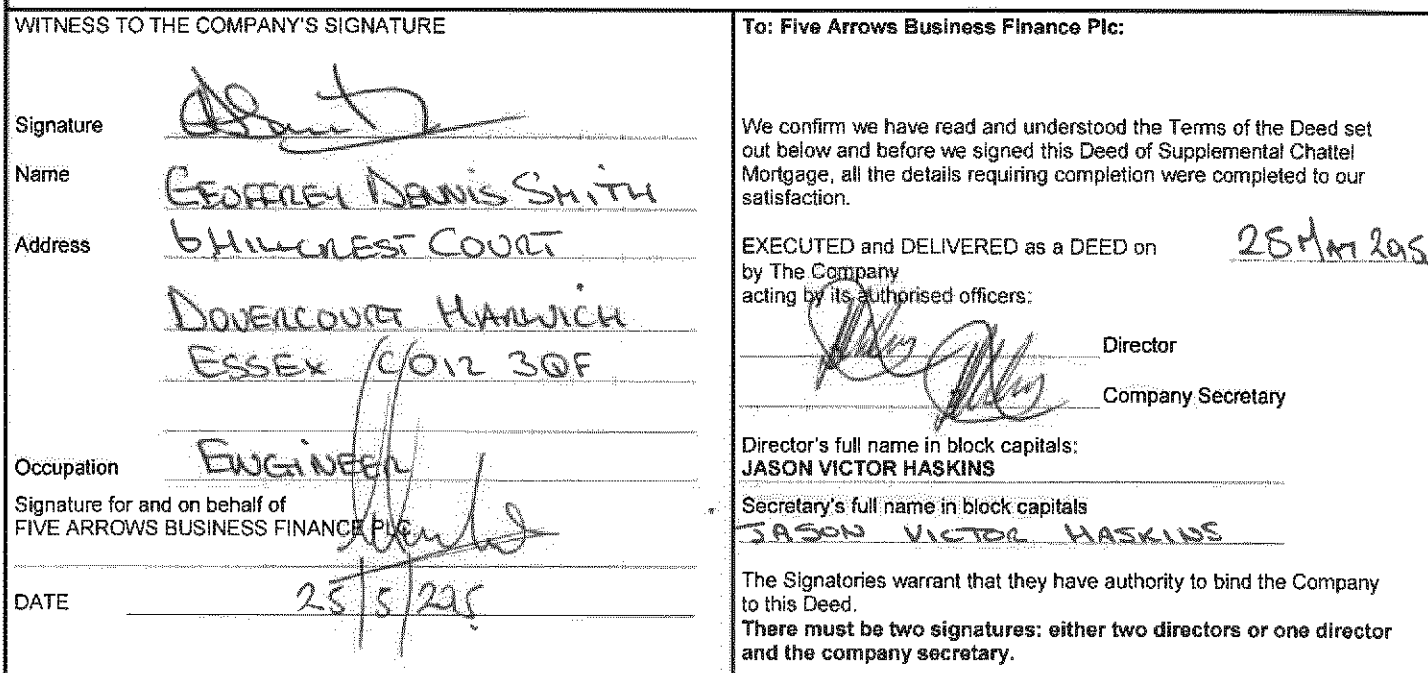 WITNESS TO THE COMPANY'S SIGNATURE
Signature
Name GEOFFREY DENNIS SMITH
Address 6 HILLCREST COURT
DOVERCOURT HARWICH
ESSEX CO12 3QF
Occupation ENGINEER
Signature for and on behalf of
FIVE ARROWS BUSINESS FINANCE PLC
DATE 25/5/2015
To: Five Arrows Business Finance Plc:
We confirm we have read and understood the Terms of the Deed set
out below and before we signed this Deed of Supplemental Chattel
Mortgage, all the details requiring completion were completed to our
satisfaction.
EXECUTED and DELIVERED as a DEED on 25 MAY 2015
by The Company
acting by its authorised officers:
Director
Company Secretary
Director's full name in block capitals:
JASON VICTOR HASKINS
Secretary's full name in block capitals
JASON VICTOR HASKINS
The Signatories warrant that they have authority to bind the Company
to this Deed.
There must be two signatures: either two directors or one director
and the company secretary.